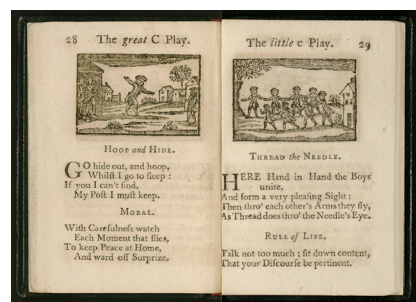 28 The great C Play.
HOOP and HIDE.
GO hide out, and hoop,
Whilst I go to sleep :
If you I can't find,
My Post I must keep.
MORAL.
With Carefulness watch
Each Moment that flies,
To keep Peace at Home,
And ward off Surprize.
The little c Play. 29
THREAD the NEEDLE.
HERE Hand in Hand the Boys
unite,
And form a very pleasing Sight :
Then thro' each other's Arms they fly,
As Thread does thro' the Needle's Eye.
RULE of LIFE.
Talk not too much ; sit down content,
That your Discourse be pertinent.